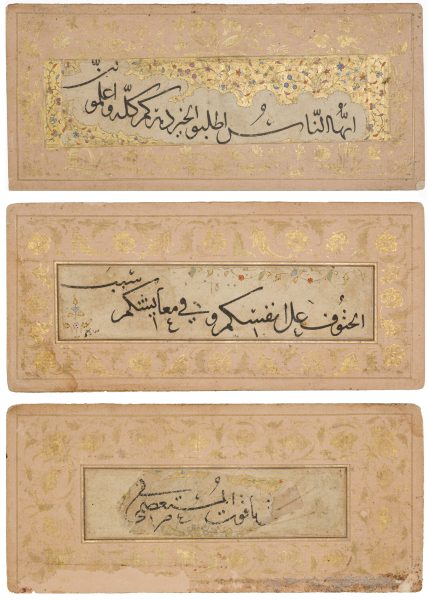 ايّها النّاس اطلبوا الخير دهركم كلّه و اعلموا
على انفسكم و في معايشكم سبب
ياقوت المستعصمي